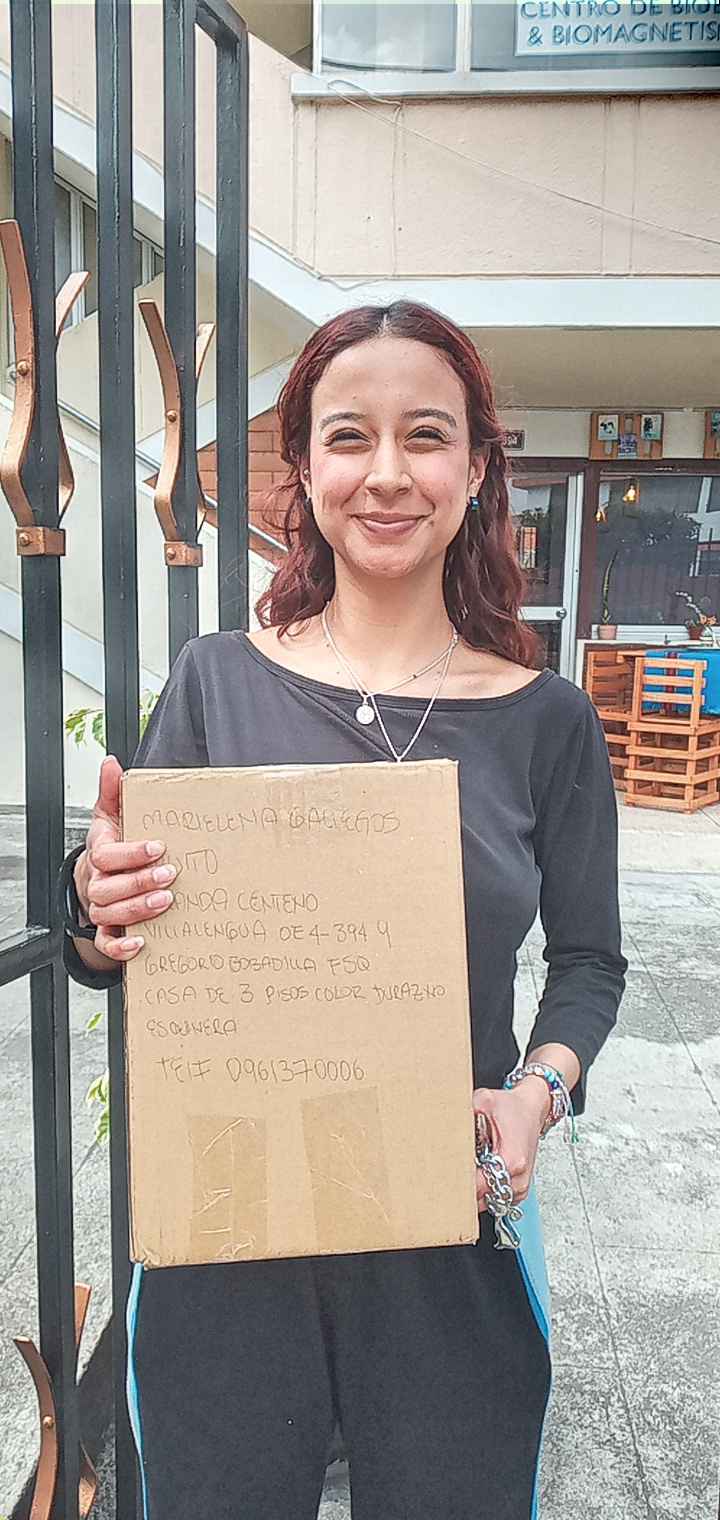 CENTRO DE BIOE
& BIOMAGNETIS
MARIELENA GALLEGOS
UITO
ANDA CENTENO
VILLALENGUA OE4-394 Y
GREGORIO BOBADILLA ESQ
CASA DE 3 PISOS COLOR DURAZNO
ESQUINERA
TELF 0961370006